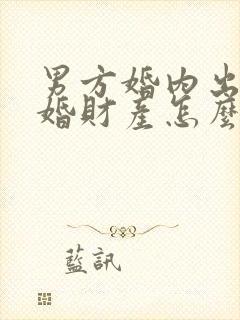 男方婚内出
婚財產怎麼
藍訊